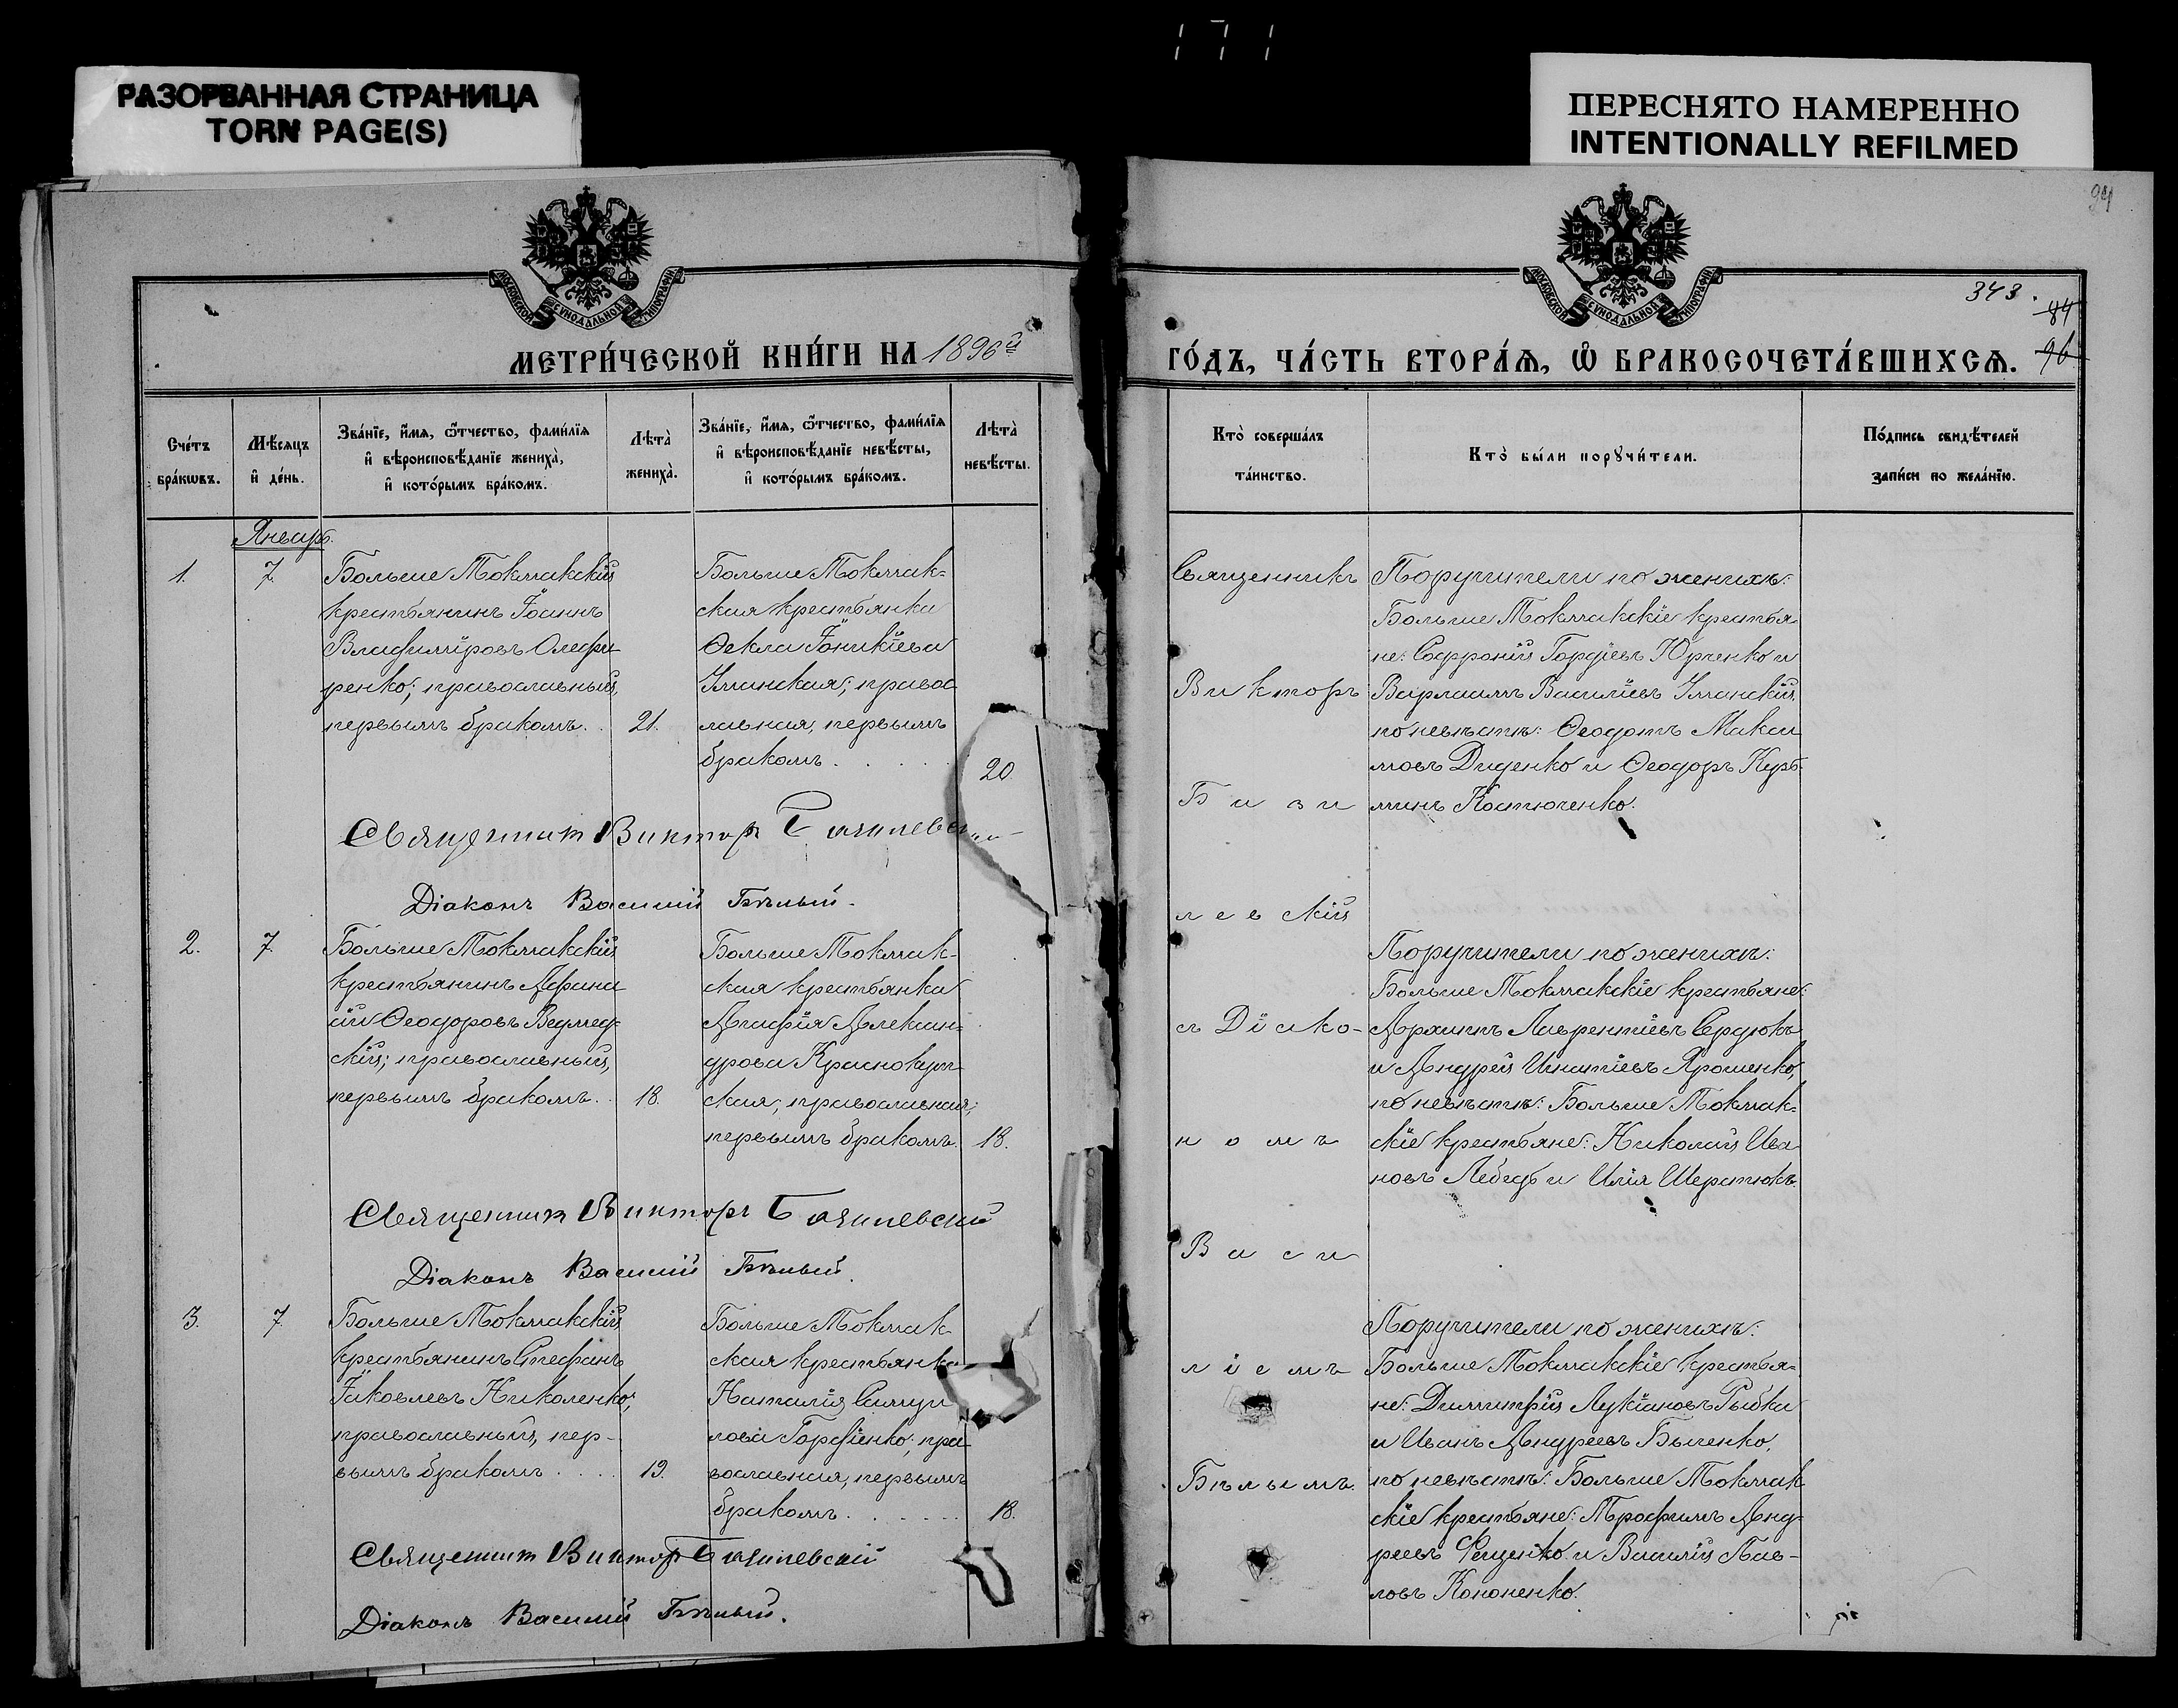 171
РАЗОРВАННАЯ СТРАНИЦА
TORN PAGE(S)
ПЕРЕСНЯТО НАМЕРЕННО
INTENTIONALLY REFILMED
94
МОСКОВСКОЙ СѴНОДАЛЬНОЙ ТИПОГРАФІИ
МЕТРИ́ЧЕСКОЙ КНИ́ГИ НА 1896й
Сче́тъ бра́кѡвъ.
Мѣ́сяцъ и҆ де́нь.
Зва́нїе, и҆́мѧ, ѻ҆́тчество, фами́лїѧ
и҆ вѣроисповѣ́данїе женихѐ,
и҆ кото́рымъ бра́комъ.
Лѣта̀ жениха̀.
Зва́нїе, и҆́мѧ, ѻ҆́тчество, фами́лїѧ
и҆ вѣроисповѣ́данїе невѣ́сты,
и҆ кото́рымъ бра́комъ.
Лѣта̀ невѣ́сты.
Январь.
1.
7.
Больше Токмакскій
крестьянинъ Іоаннъ
Владиміровъ Олефи
ренко; православный,
первымъ бракомъ.
21.
Больше Токмак-
ская крестьянка
Ѳекла Іоникіева
Уманская; правос
лавная, первымъ
бракомъ
20.
Священник Виктор Базилевский
Діаконъ Василий Бѣлый.
2.
7.
Больше Токмакскій
крестьянинъ Афана
сій Ѳеодоровъ Ведмед-
скій; православный,
первымъ бракомъ.
18.
Больше Токмак-
ская крестьянка
Агафія Алексан-
дрова Краснокут
ская; православная;
первымъ бракомъ.
18.
Священник Виктор Базилевский
Діаконъ Василий Бѣлый.
3.
7.
Больше Токмакскій
крестьянинъ Стефанъ
Іаковлевъ Николенко;
православный, пер-
вымъ бракомъ
19.
Больше Токмак
ская крестьянка
Наталія Самуи
лова Гордіенко; пра
вославная, первымъ
бракомъ
18.
Священник Виктор Базилевский
Діаконъ Василий Бѣлый.
МОСКОВСКОЙ СѴНОДАЛЬНОЙ ТИПОГРАФІИ
343.
84
96
ГО́ДЪ, ЧА́СТЬ ВТОРА́Ѧ, Ѽ БРАКОСОЧЕТА́ВШИХСѦ.
Кто̀ соверша́лъ
та́инство.
Кто̀ бы́ли порꙋчи́тели.
По́дпись свидѣ́телей
за́писи по жела́нїю.
Священникъ
Викторъ
Бази
левскій
съ Діако-
номъ
Васи
ліемъ
Бѣлымъ.
Поручители по женихѣ:
Больше Токмакскіе крестья
не: Софроній Гордіевъ Юрченко и
Варлаамъ Василіевъ Уманскій,
по невѣстѣ: Ѳеодотъ Макси
мовъ Диденко и Ѳеодоръ Кузь-
минъ Костюченко.
Поручители по женихѣ:
Больше Токмакскіе крестьяне:
Архипъ Лаврентіевъ Сердюкъ
и Андрей Игнатіевъ Ярошенко,
по невѣстѣ: Больше Токмак-
скіе крестьяне: Николай Ива
новъ Лебедь и Илія Шерстюкъ.
Поручители по женихѣ:
Больше Токмакскіе крестья-
не: Димитрій Лукіановъ Рыбка
и Иванъ Андреевъ Быченко,
по невѣстѣ: Больше Токмак
скіе крестьяне: Трофимъ Анд-
реевъ Фещенко и Василій Пав-
ловъ Кононенко.